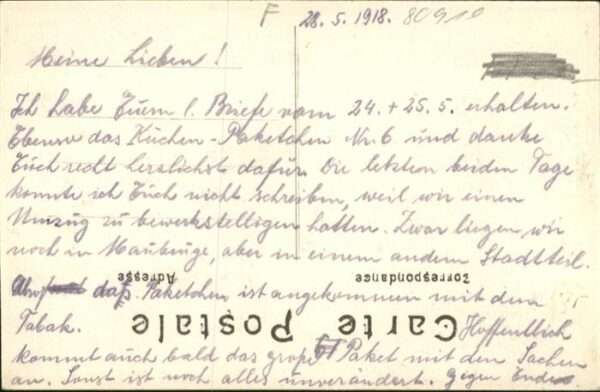 F 28. 5. 1918. 80910
Meine Lieben!
Ich habe Euern l. Briefe vom 24. + 25. 5. erhalten.
Ebenso das Kuchen-Paketchen Nr. 6 und danke
Euch recht herzlichst dafür. Die letzten beiden Tage
konnte ich Euch nicht schreiben, weil wir einen
Umzug zu bewerkstelligen hatten. Zwar liegen wir
noch in Maubeuge, aber in einem andern Stadtteil.
Correspondance
Adresse
das Paketchen ist angekommen mit dem
Carte Postale
Tabak. Hoffentlich
kommt auch bald das große Paket mit den Sachen
an. Sonst ist noch alles unverändert. Gegen Ende